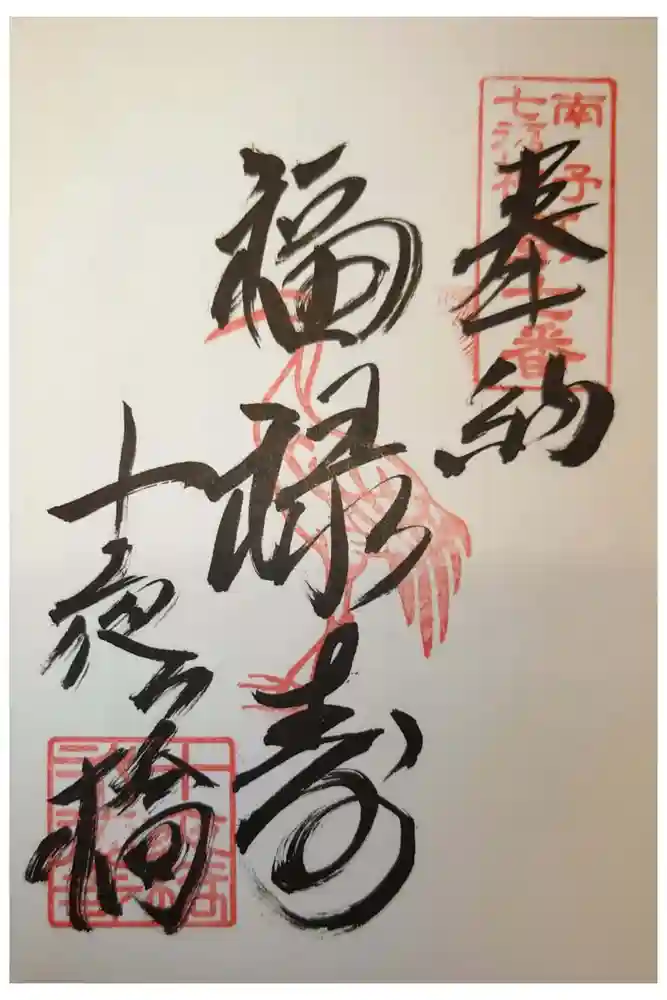 南予
七福神
奉納
福禄寿
十夜ヶ橋